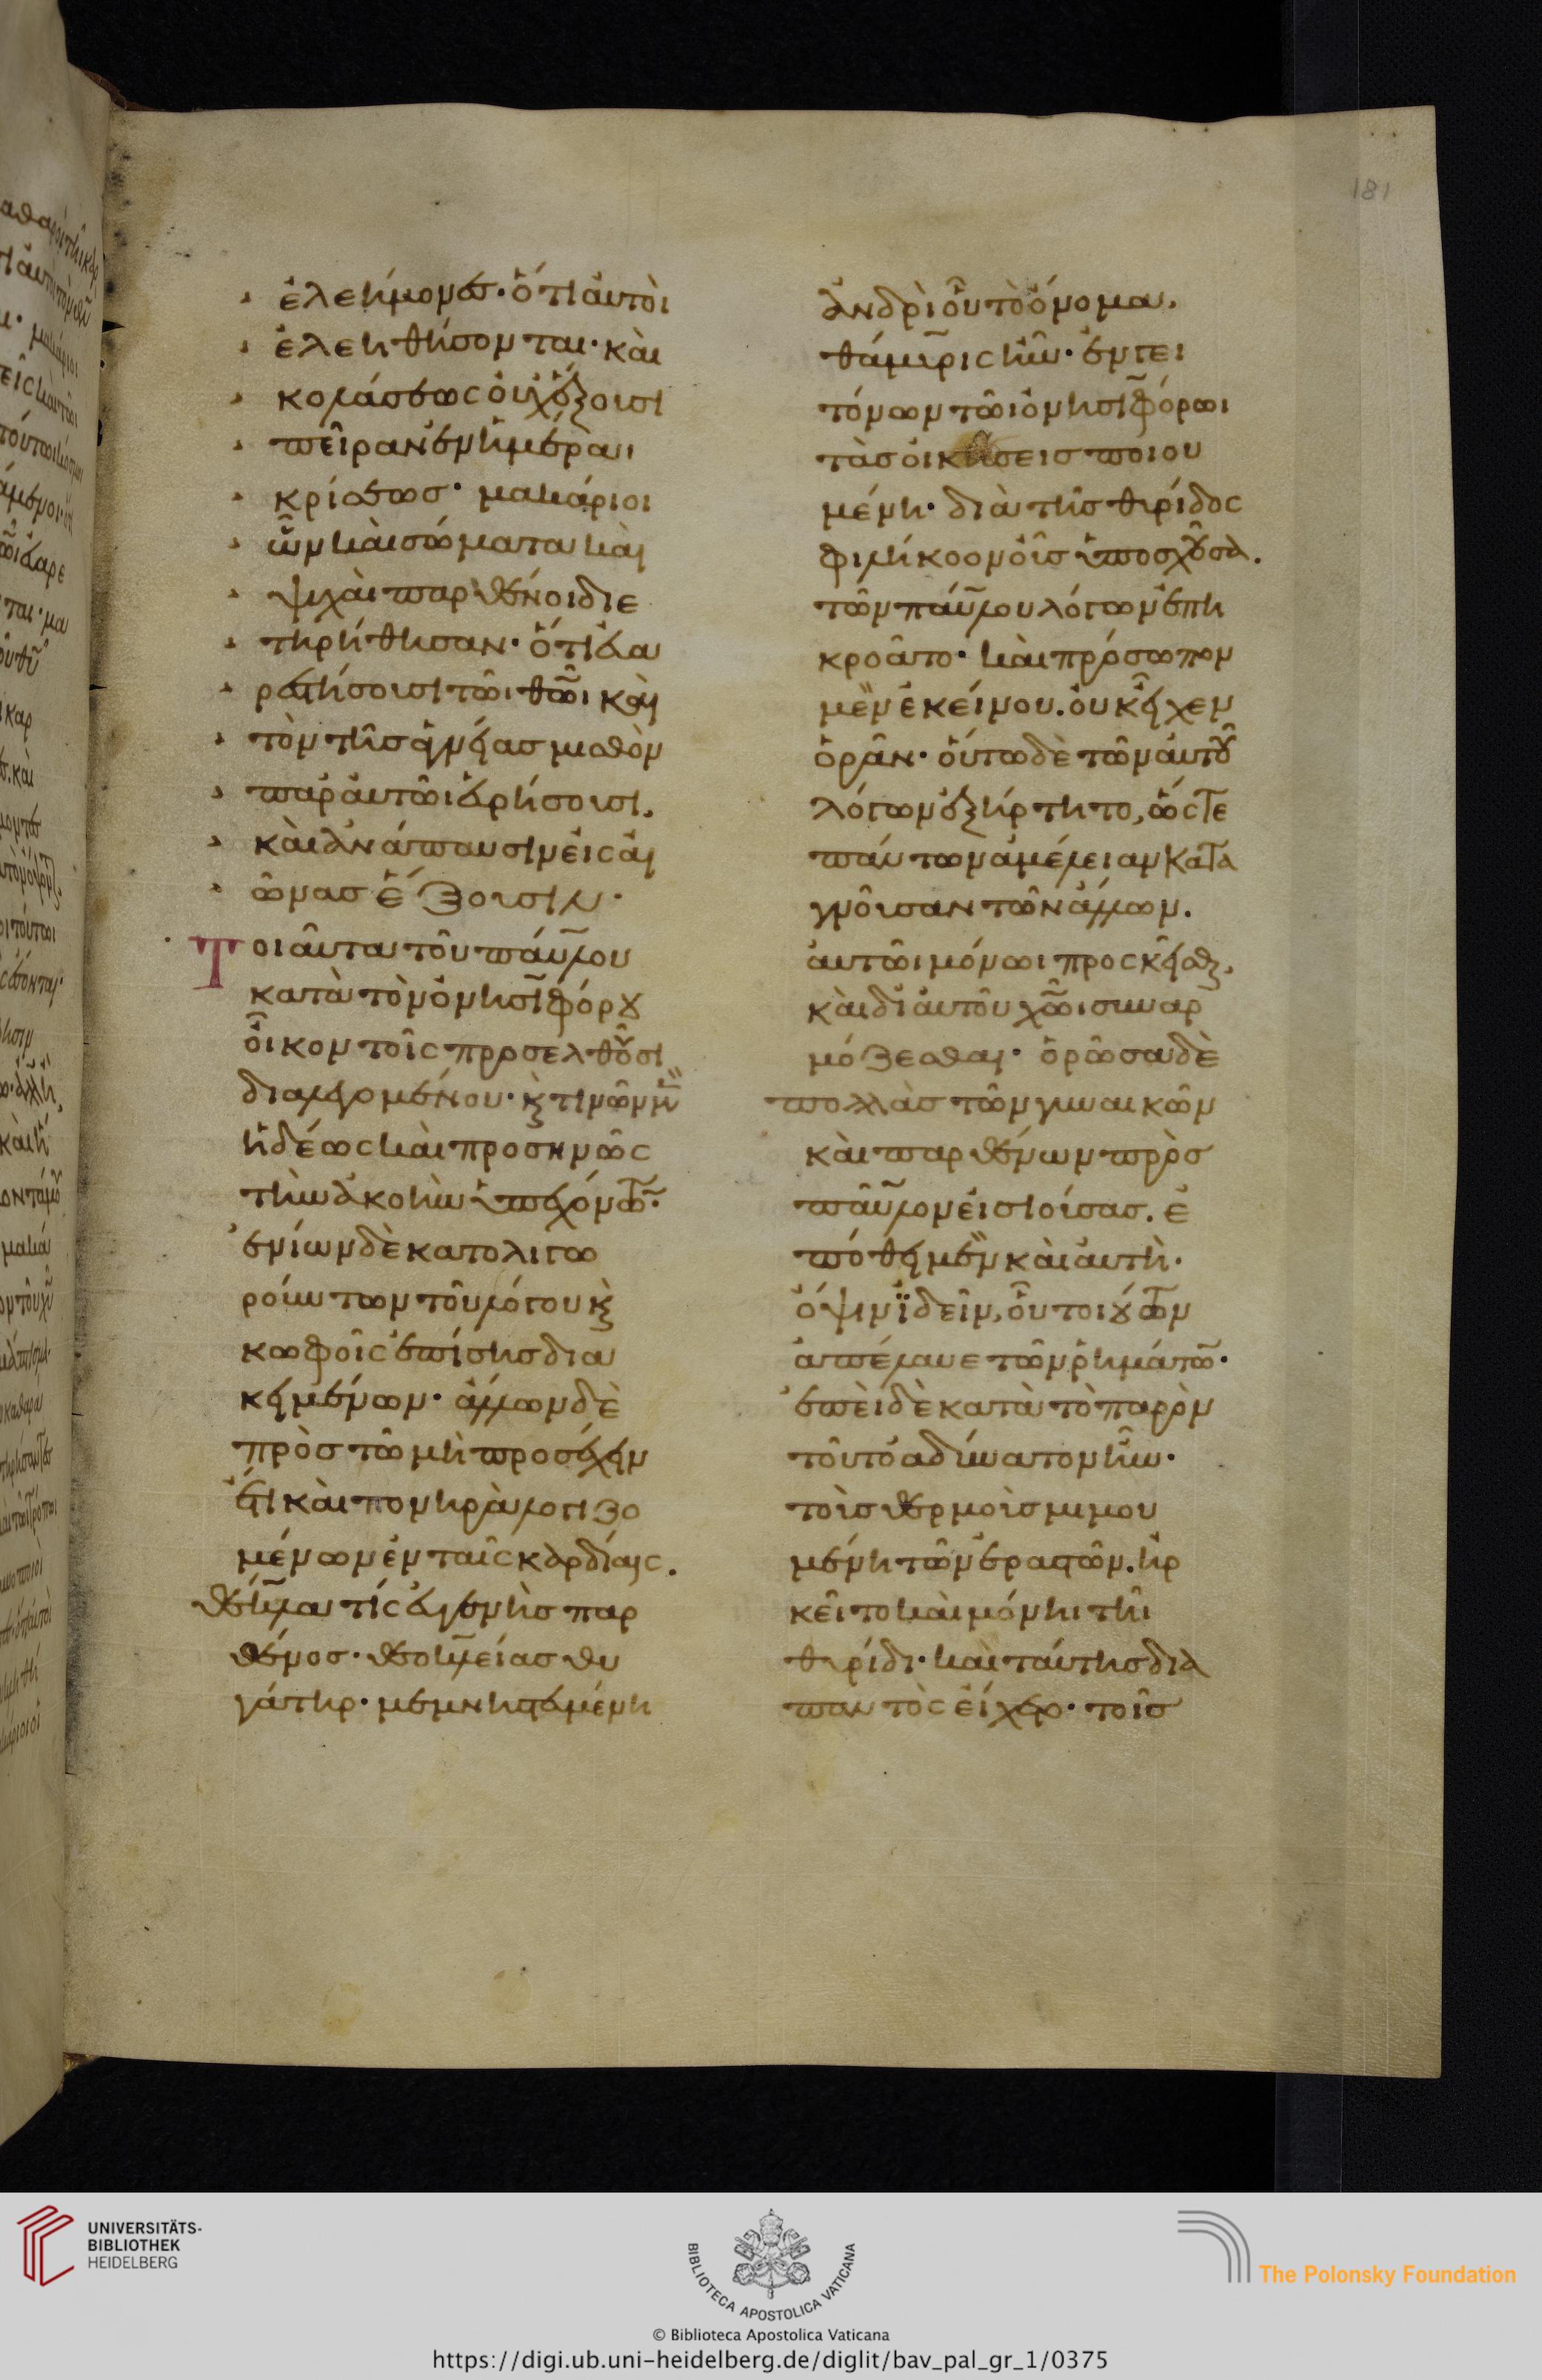 ἐλεήμονες· ὅτι αὐτοὶ
ἐλεηθήσονται· καὶ
κολάσεως οὐχ ἕξουσι
πεῖραν ἐν ἡμέραι
κρίσεως· μακάριοι
ὧν καὶ σώματα καὶ
ψυχαὶ παρθένοι διε
τηρήθησαν· ὅτι εὐα
ρεστήσουσι τῶι θ̅ω̅ι καὶ
τὸν τῆς ἁγνείας μισθὸν
παρ αὐτῶι εὑρήσουσι,
καὶ ἀνάπαυσιν εἰς αἰ
ῶνας ἕξουσιν·
Τοιαῦτα τοῦ παύλου
κατὰ τὸν ὀνησιφόρου
οἶκον τοῖς προσελθοῦσι
διαλεγομένου· κ τινῶν μὲν
ἡδέως καὶ προσηνῶς
τὴν ἀκοὴν ὑπεχόντων·
ἐνίων δὲ κατολιγω
ρούντων τοῦ λόγου κ
κωφοῖς ἐπίσης δια
κειμένων· ἄλλων δὲ
πρὸς τῶ μὴ προσέχειν
ἔτι καὶ πονηρὰ λογιζο
μένων ἐν ταῖς καρδίαις.
θέκλα τίς εὐγενὴς παρ
θένος· θεοκλείας θυ
γάτηρ· μεμνηστευμένη
ἀνδρὶ οὗ τὸ ὄνομα.
θάμυρις ἦν· ἐν γει
τόνων τῶι ὀνησιφόρωι
τὰς οἰκήσεις ποιου
μένη· διὰ τῆς θυρίδος
φιληκόον οὖς ὑποσχοῦσα.
τῶν παύλου λόγων ἐπη
κροᾶτο· καὶ πρόσωπον
μὲν ἐκείνου. οὐκ εἶχεν
ὁρᾶν· οὕτω δὲ τῶν αὐτοῦ
λόγων ἐξήρτητο, ὥστε
πάντων ἀμέλειαν κατα
γνοῦσαν τῶν ἄλλων.
αὐτῶι μόνωι προσκεῖσθαι,
καὶ δι αὐτοῦ χ̅ω̅ι συναρ
μόζεσθαι· ὁρῶσα δὲ
πολλὰς τῶν γυναικῶν
καὶ παρθένων πρὸς
παῦλον εἰσιούσας. ἐ
πόθει μὲν καὶ αὐτὴ.
ὄψιν ϊδεῖν, οὗ τοιούτων
ἀπέλαυε τῶν ῥημάτων·
ἐπεὶ δὲ κατὰ τὸ παρὸν
τοῦτο ἀδύνατον ἦν·
τοὺς θερμοὺς μιμου
μένη τῶν ἐραστῶν. ἠρ
κεῖτο καὶ μόνηι τῆι
θυρίδι· καὶ ταύτης δια
παντὸς εἴχετο· τοῖς
181
UNIVERSITÄTS-
BIBLIOTHEK
HEIDELBERG
BIBLIOTECA APOSTOLICA VATICANA
The Polonsky Foundation
© Biblioteca Apostolica Vaticana
https://digi.ub.uni-heidelberg.de/diglit/bav_pal_gr_1/0375